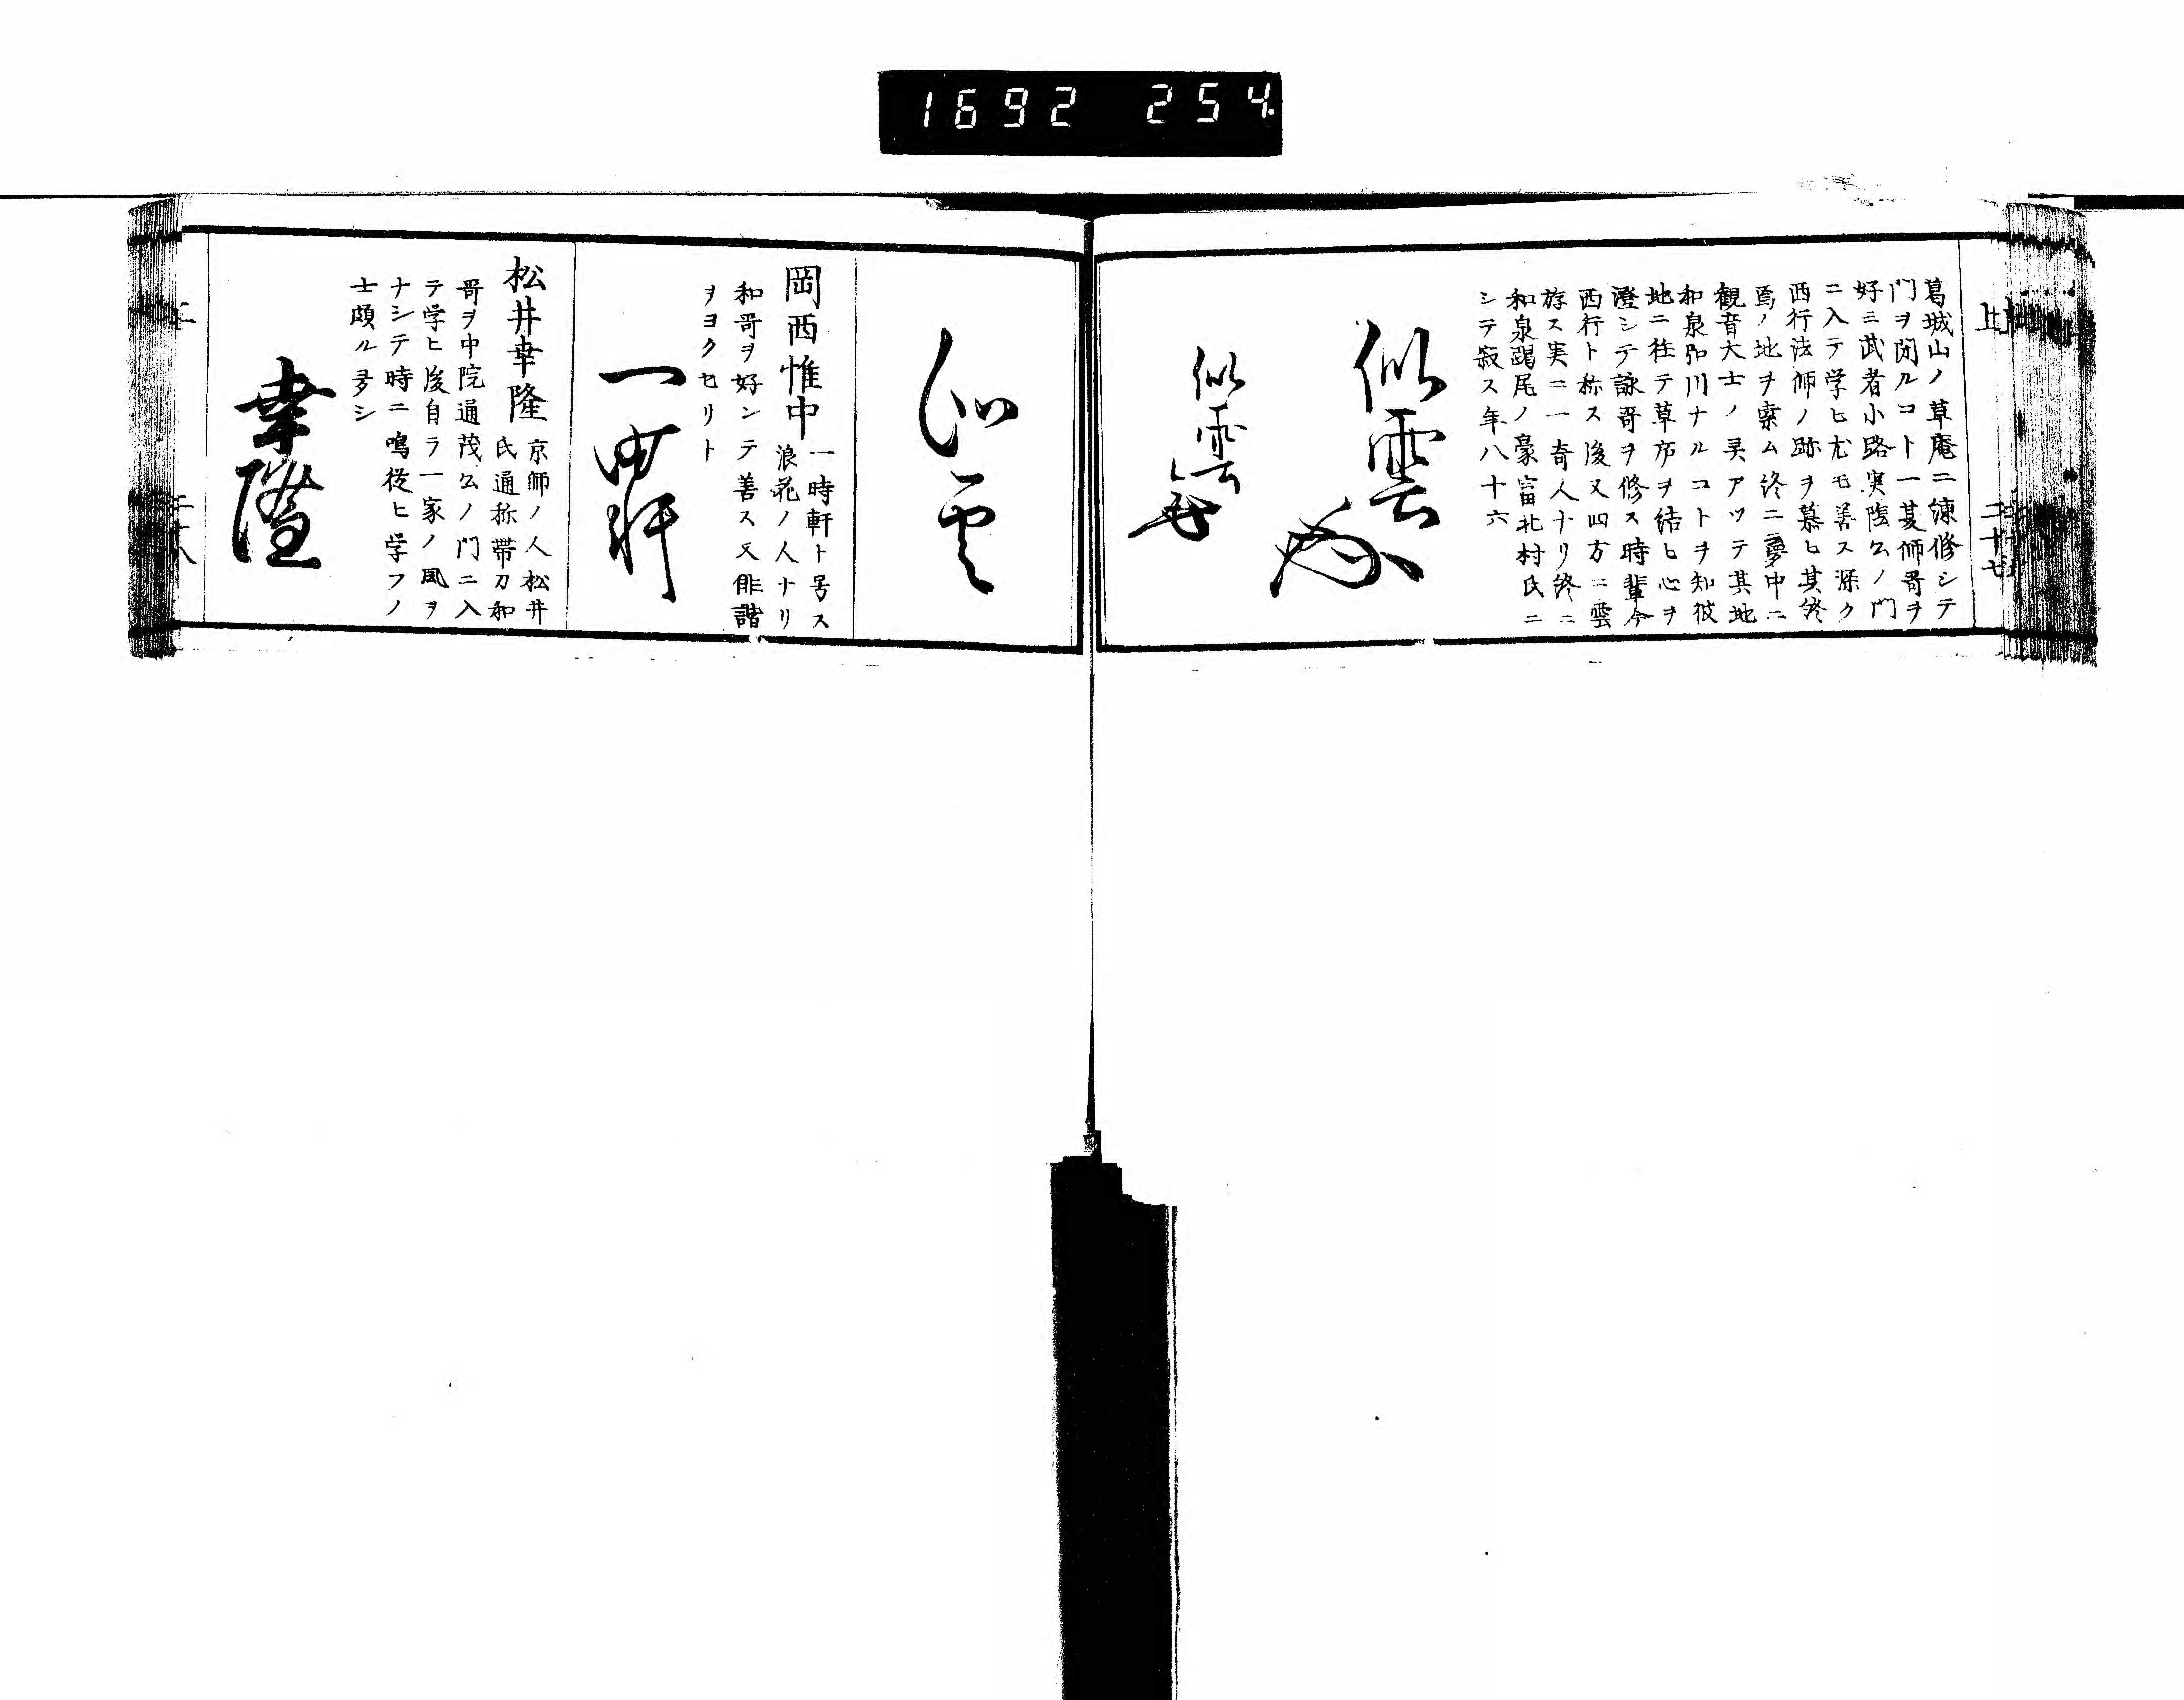 1692 254.
上
二十七
葛城山ノ草庵ニ練修シテ
門ヲ閉ルコト一夏師哥ヲ
好ミ武者小路実陰公ノ門
ニ入テ学ヒ尤モ善ス深ク
西行法師ノ跡ヲ慕ヒ其終
焉ノ地ヲ索ム終ニ夢中ニ
観音大士ノ㚑アツテ其地
和泉弘川ナルコトヲ知彼
地ニ往テ草庐ヲ結ヒ心ヲ
澄シテ詠哥ヲ修ス時輩今
西行ト称ス後又四方ニ雲
旅ス実ニ一奇人ナリ終ニ
和泉踞尾ノ豪富北村氏ニ
シテ寂ス年八十六
似雲
似雲
似雲
岡西惟中
一時軒ト号ス
浪花ノ人ナリ
和哥ヲ好ンテ善ス又俳諧
ヲヨクセリト
一時軒
松井幸隆
京師ノ人松井
氏通称帯刀和
哥ヲ中院通茂公ノ門ニ入
テ学ヒ後自ラ一家ノ風ヲ
ナシテ時ニ鳴従ヒ学フノ
士頗ル多シ
幸隆